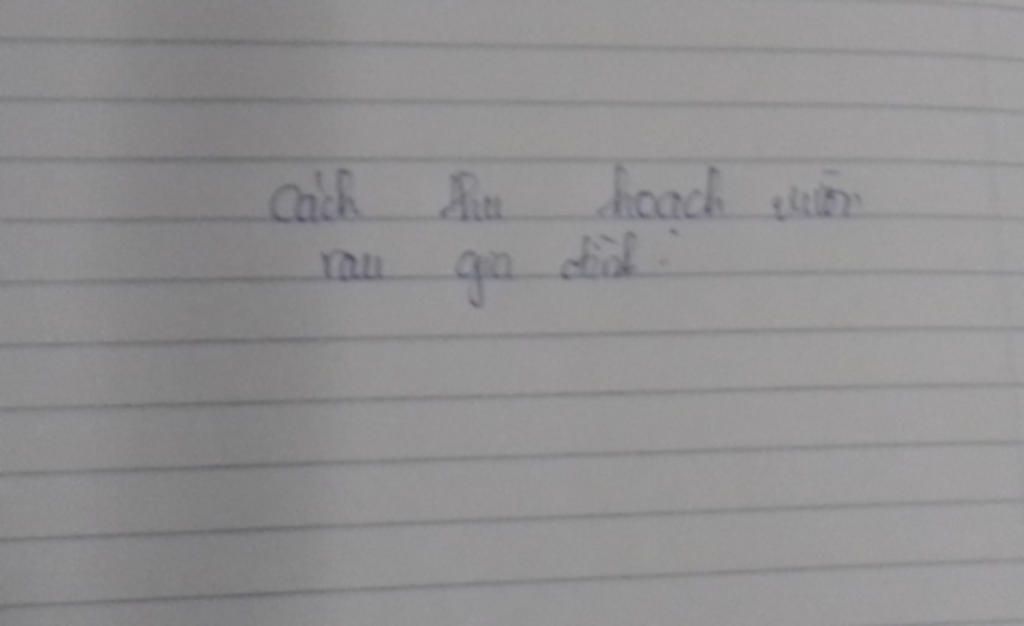 Cách thu hoạch vườn
rau gia đình.